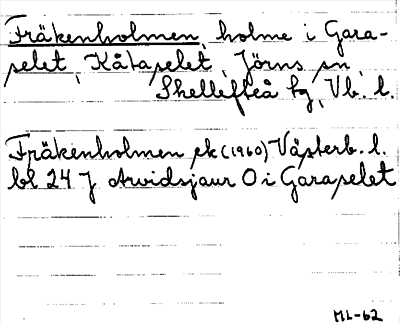 Fräkenholmen, holme i Gara-
selet, Kåtaselet, Jörns sn,
Skellefteå tg, Vb. l.
Fräkenholmen ek (1960) Västerb. l.
bl 24 J Arvidsjaur O i Garaselet
ML-62